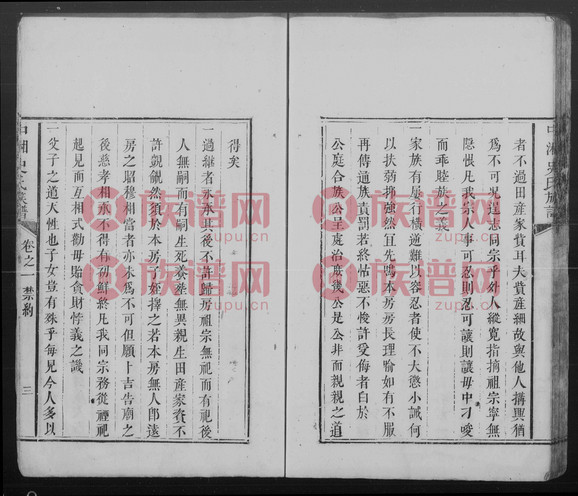 中湘吳氏族譜
者不過田産家貲耳夫貲産細故與他人搆興猶
爲不可況遠志同宗乎外人縱寬指摘祖宗寧無
隱恨凡我宗人事可忍則忍可讓則讓毋中刁唆
而乖睦族之義
一家族有屢行橫逆難以容忍者使不大懲小誡何
以扶弱抑強然宜先鳴本房房長理喻如有不服
再傳通族責罰若終怙惡不悛許受侮者白於
公庭合族公呈處治庶幾公是公非而親親之道
得矣
一過繼者永承其後不許歸房祖宗無祀而有祀後
人無嗣而有嗣生死養葬無異親生田産家赀不
許覬覦然須於本房姪擇之若本房無人卽遠
房之昭穆相當者亦未爲不可但願十吉告廟之
後慈孝相永不得有初鮮終凡我同宗務從禋祀
起見而互相式勸毋貽貪財悖義之譏
一父子之道天性也子女豈有殊乎每見今人多以
中湘吳氏族譜
卷之一
禁約
三
族谱网
zupu.cn